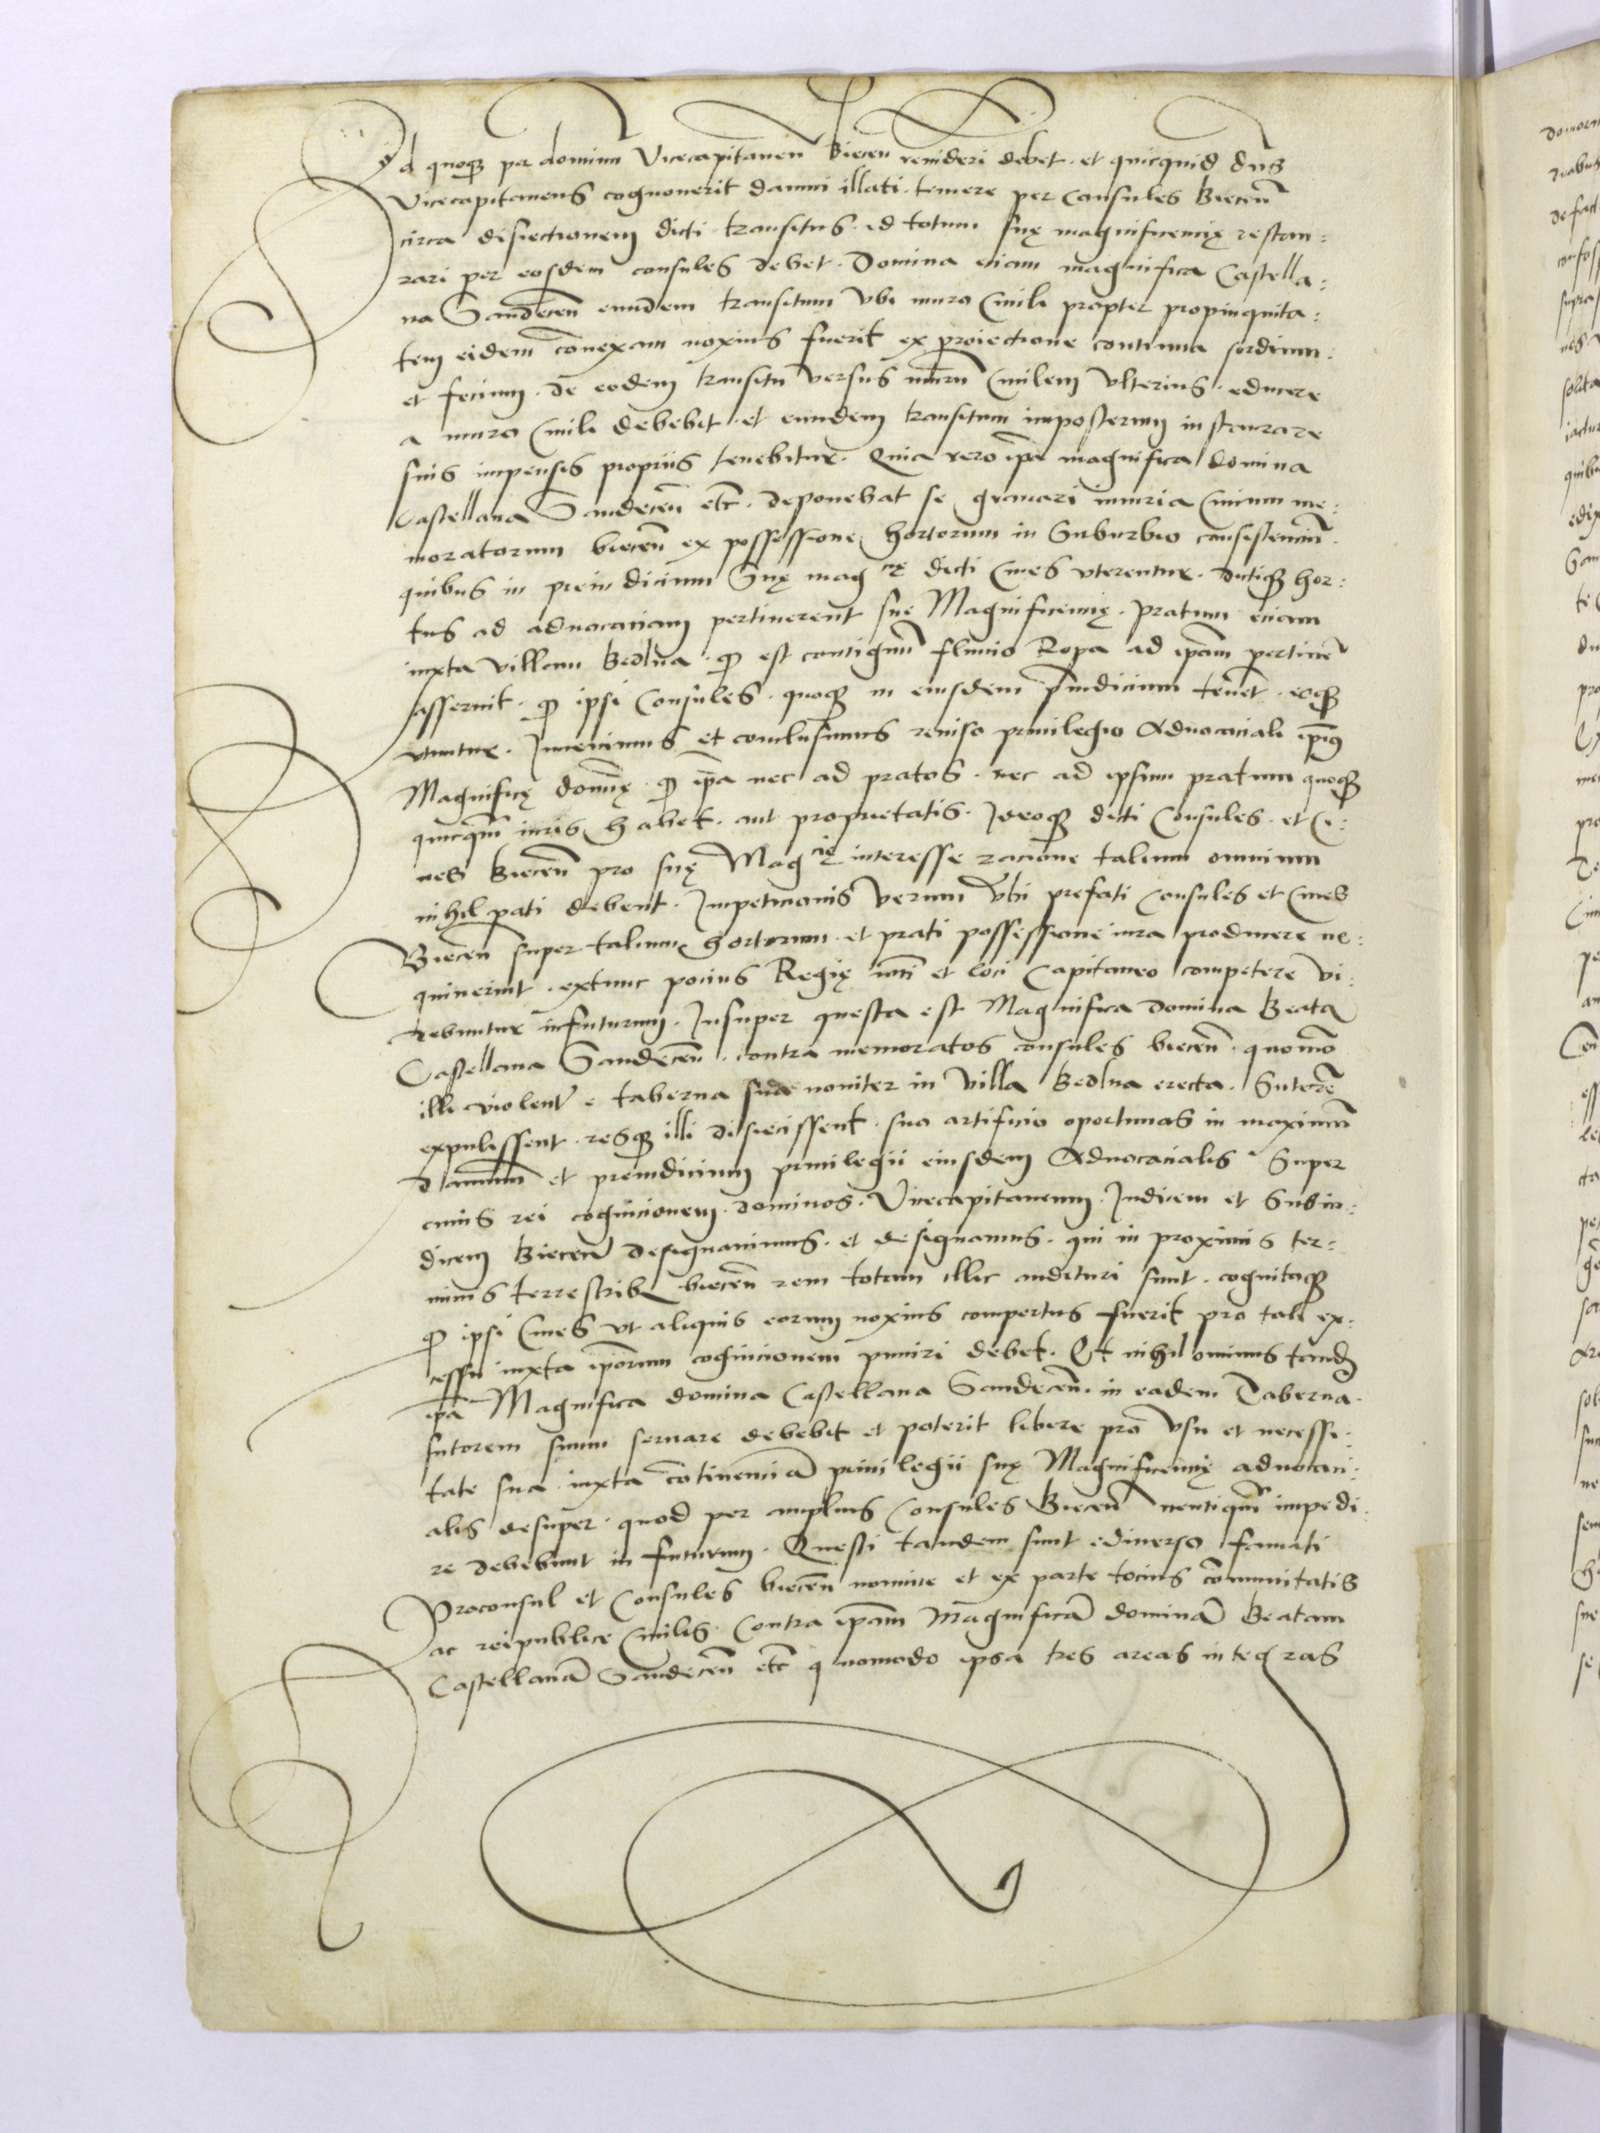 Id quoqȝ per dominum Vicecapitaneū Biecen̄ revideri debet. et quicquid dn̄s
Vicecapitaneus cognouerit damni illati. temere per Consules Biecen̄
circa disiectionem dicti transitus. id totum suę magnificencię restau:
rari per eosdem consules debet. Domina eciam magnifica Castella:
na Sandecen̄ eundem transitum vbi muro Ciuili propter propinquita:
tem eidem cōnexam noxius fuerit ex proiectione continua sordium.
et fecium. de eodem transitu versus murū Ciuilem vlterius. educere
a muro Ciuili debebit. et eundem transitum imposterum instaurare
suis impensis propriis tenebitur. Quia vero ip̄a magnifica domina
Castellana Sandecen̄ etc̄. deponebat se grauari iniuria Ciuium me:
moratorum biecen̄ ex possessione hortorum in Suburbio consistencium̄.
quibus in preiudicium Suę magcię dicti Ciues vterentur. dictiqȝ hor:
tus ad aduocaciam pertinerent suę Magnificencię. pratum eciam
iuxta villam Bedlna. qȝ est contiguū fluuio Ropa ad ip̄am pertinē
asseruit. qȝ ipsi Consules. quoqȝ in eiusdem p̄iudicium tenēt. eoqȝ
vtuntur. Inuenimus et conclusimus reuiso priuilegio Aduocaciali ip̄ius
Magnificę dominę. qȝ ip̄a nec ad pratos. nec ad ipsum pratum quoqȝ
quicqȝm iuris habet. aut proprietatis. Ideoqȝ dicti Consules. et Ci:
ues Biecen̄ pro suę Magcię interesse racione talium omnium
nihil pati debent. Impeticionis verum vbi prefati Consules et Ciues
Biecen̄ super talium hortorum. et prati possessione iura producere ne:
quiuerint. extunc pocius Regię mti et loci Capitaneo competere vi:
debuntur infuturum. Insuper questa est Magnifica domina Beata
Castellana Sandecen̄. contra memoratos consules biecen̄. quomō
illi violenter e taberna sua nouiter in villa Bedlna erecta. Sutorē
expulissent. resqȝ illi disiecissent. suo artificio oportunas in maximū
damnum et preiudicium priuilegii eiusdem Aduocacialis. Super
cuius rei cognicionem. dominos. Vicecapitaneum. Iudicem et Subiu:
dicem Biecen̄ designauimus. et designamus. qui in proximis ter:
minis terrestribȝ biecen̄ rem totam illic audituri sunt. cognitaqȝ
qȝ ipsi Ciues vt aliquis eorum noxius compertus fuerit pro tali ex:
cessu iuxta ip̄orum cognicionem puniri debet. Et nihilominus tandē
ip̄a Magnifica domina Castellana Sandecen̄. in eadem Taberna.
sutorem suum seruare debebit et poterit libere pro vsu et necessi:
tate sua. iuxta cōtinenciā priuilegii suę Magnificencię aduocaci:
alis desuper. quod per amplius Consules Biecen̄ neutiqȝ impedi:
re debebunt in futurum. Questi tandem sunt ediuerso famati
Proconsul et Consules biecen̄ nomine et ex parte tocius cōmunitatis
ac reipublice Ciuilis. Contra ip̄am Magnificā dominā Beatam
Castellanā Sandecen̄ etc̄ quomodo ipsa tres areas integras